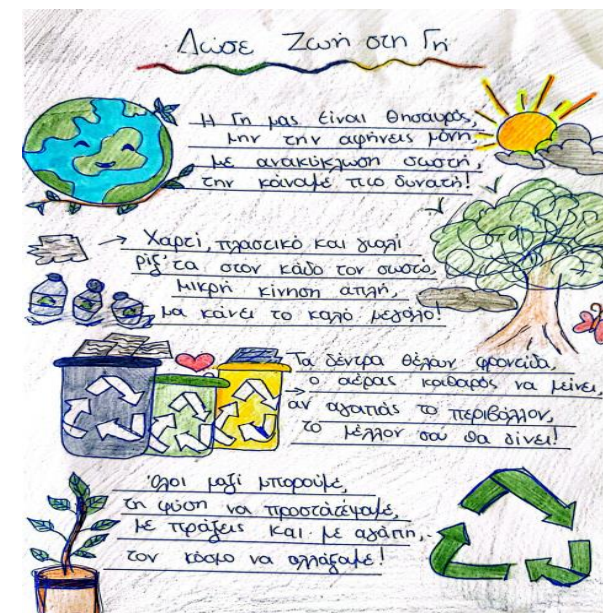 Δώσε Ζωή στη Γή
Η Γη μας είναι θησαυρός,
μην την αφήνεις μόνη,
με ανακύκλωση σωστή,
την κάναμε πιο δυνατή!
Χαρτί, πλαστικό και γυαλί
ρίξ' τα στον κάδο τον σωστό,
μικρή κίνηση απλή,
μα κάνει το καλό μεγάλο!
Τα δέντρα θέλουν φροντίδα,
ο αέρας καθαρός να μείνει,
αν αγαπάς το περιβάλλον,
το μέλλον σου θα δίνει!
Όλοι μαζί μπορούμε,
τη φύση να προστατέψαμε,
με πράξεις και με αγάπη,
τον κόσμο να αλλάξαμε!